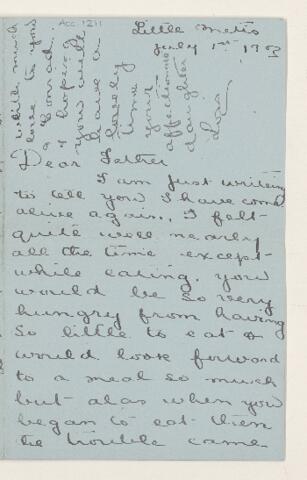 Acc 1211
Little Metis
July 1st 1903
Dear Father
I am just writing
to tell you I have come
alive again. I felt
quite well nearly
all the time except
while eating. you
would be so very
hungry from having
so little to eat &
would look forward
to a meal so much
but alas when you
began to eat then
the trouble came
with much
love to you
& Conrad.
I hope
you will
have a
lovely
time
your
affectionate
daughter